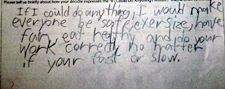 Please tell us briefly about how your doodle expresses the "If I Could Do Anything,
If I could do anything, I would make
everyone be safe, exersize, have
fun, eat helthy and do your
work correctly no matter
if your fast or slow.